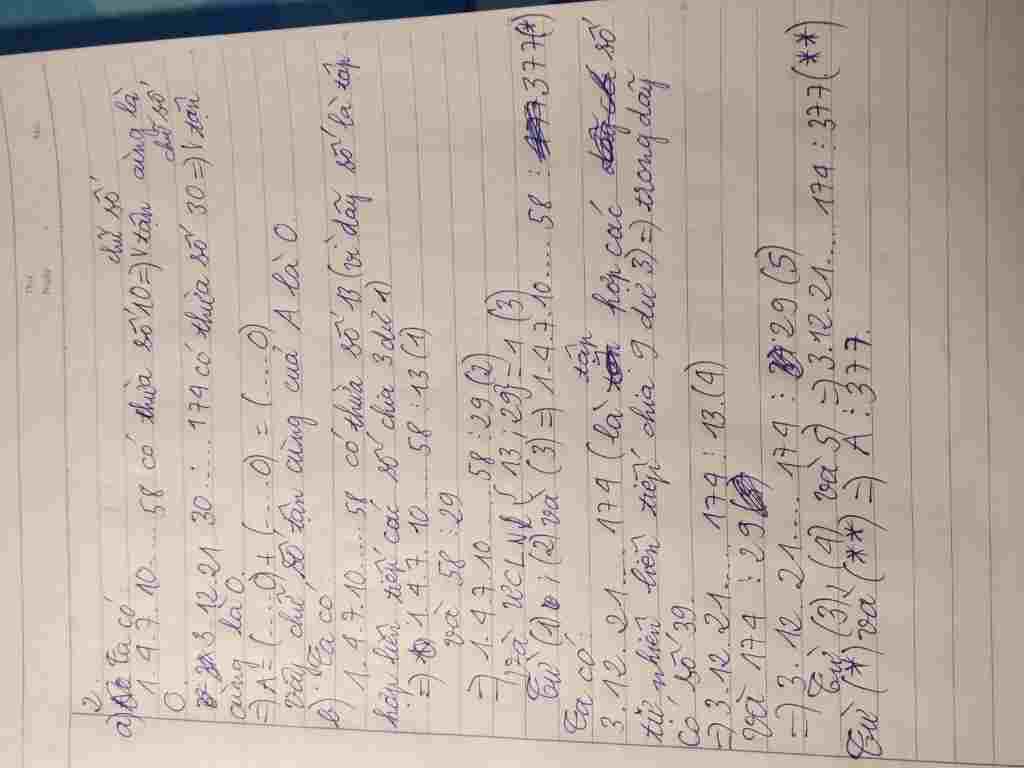 2.
a) Ta có
chữ số
1.4.7.10.....58 có thừa số 10 => \ tận cùng là
0.
chữ số
3.12.21.30.....174 có thừa số 30 => \ tận
cùng là 0
=> A = (....0) + (....0) = (....0)
Vậy chữ số tận cùng của A là 0.
b) Ta có
1.4.7.10.....58 có thừa số 13 (vì dãy số là tập
hợp liên tiếp các số chia 3 dư 1)
=> 1.4.7.10.....58 ⋮ 13 (1)
và 58 ⋮ 29
=> 1.4.7.10.....58 ⋮ 29 (2)
và ƯCLN { 13 ; 29 } = 1 (3)
Từ (1) ; (2) và (3) => 1.4.7.10.....58 ⋮ 377 (*)
Ta có:
3.12.21.....174 (là tập hợp các số
tự nhiên liên tiếp chia 9 dư 3) => trong dãy
có số 39.
=> 3.12.21.....174 ⋮ 13 (4)
Và 174 ⋮ 29
=> 3.12.21.....174 ⋮ 29 (5)
Từ (3), (4) và 5) => 3.12.21.....174 ⋮ 377 (**)
Từ (*) và (**) => A ⋮ 377.